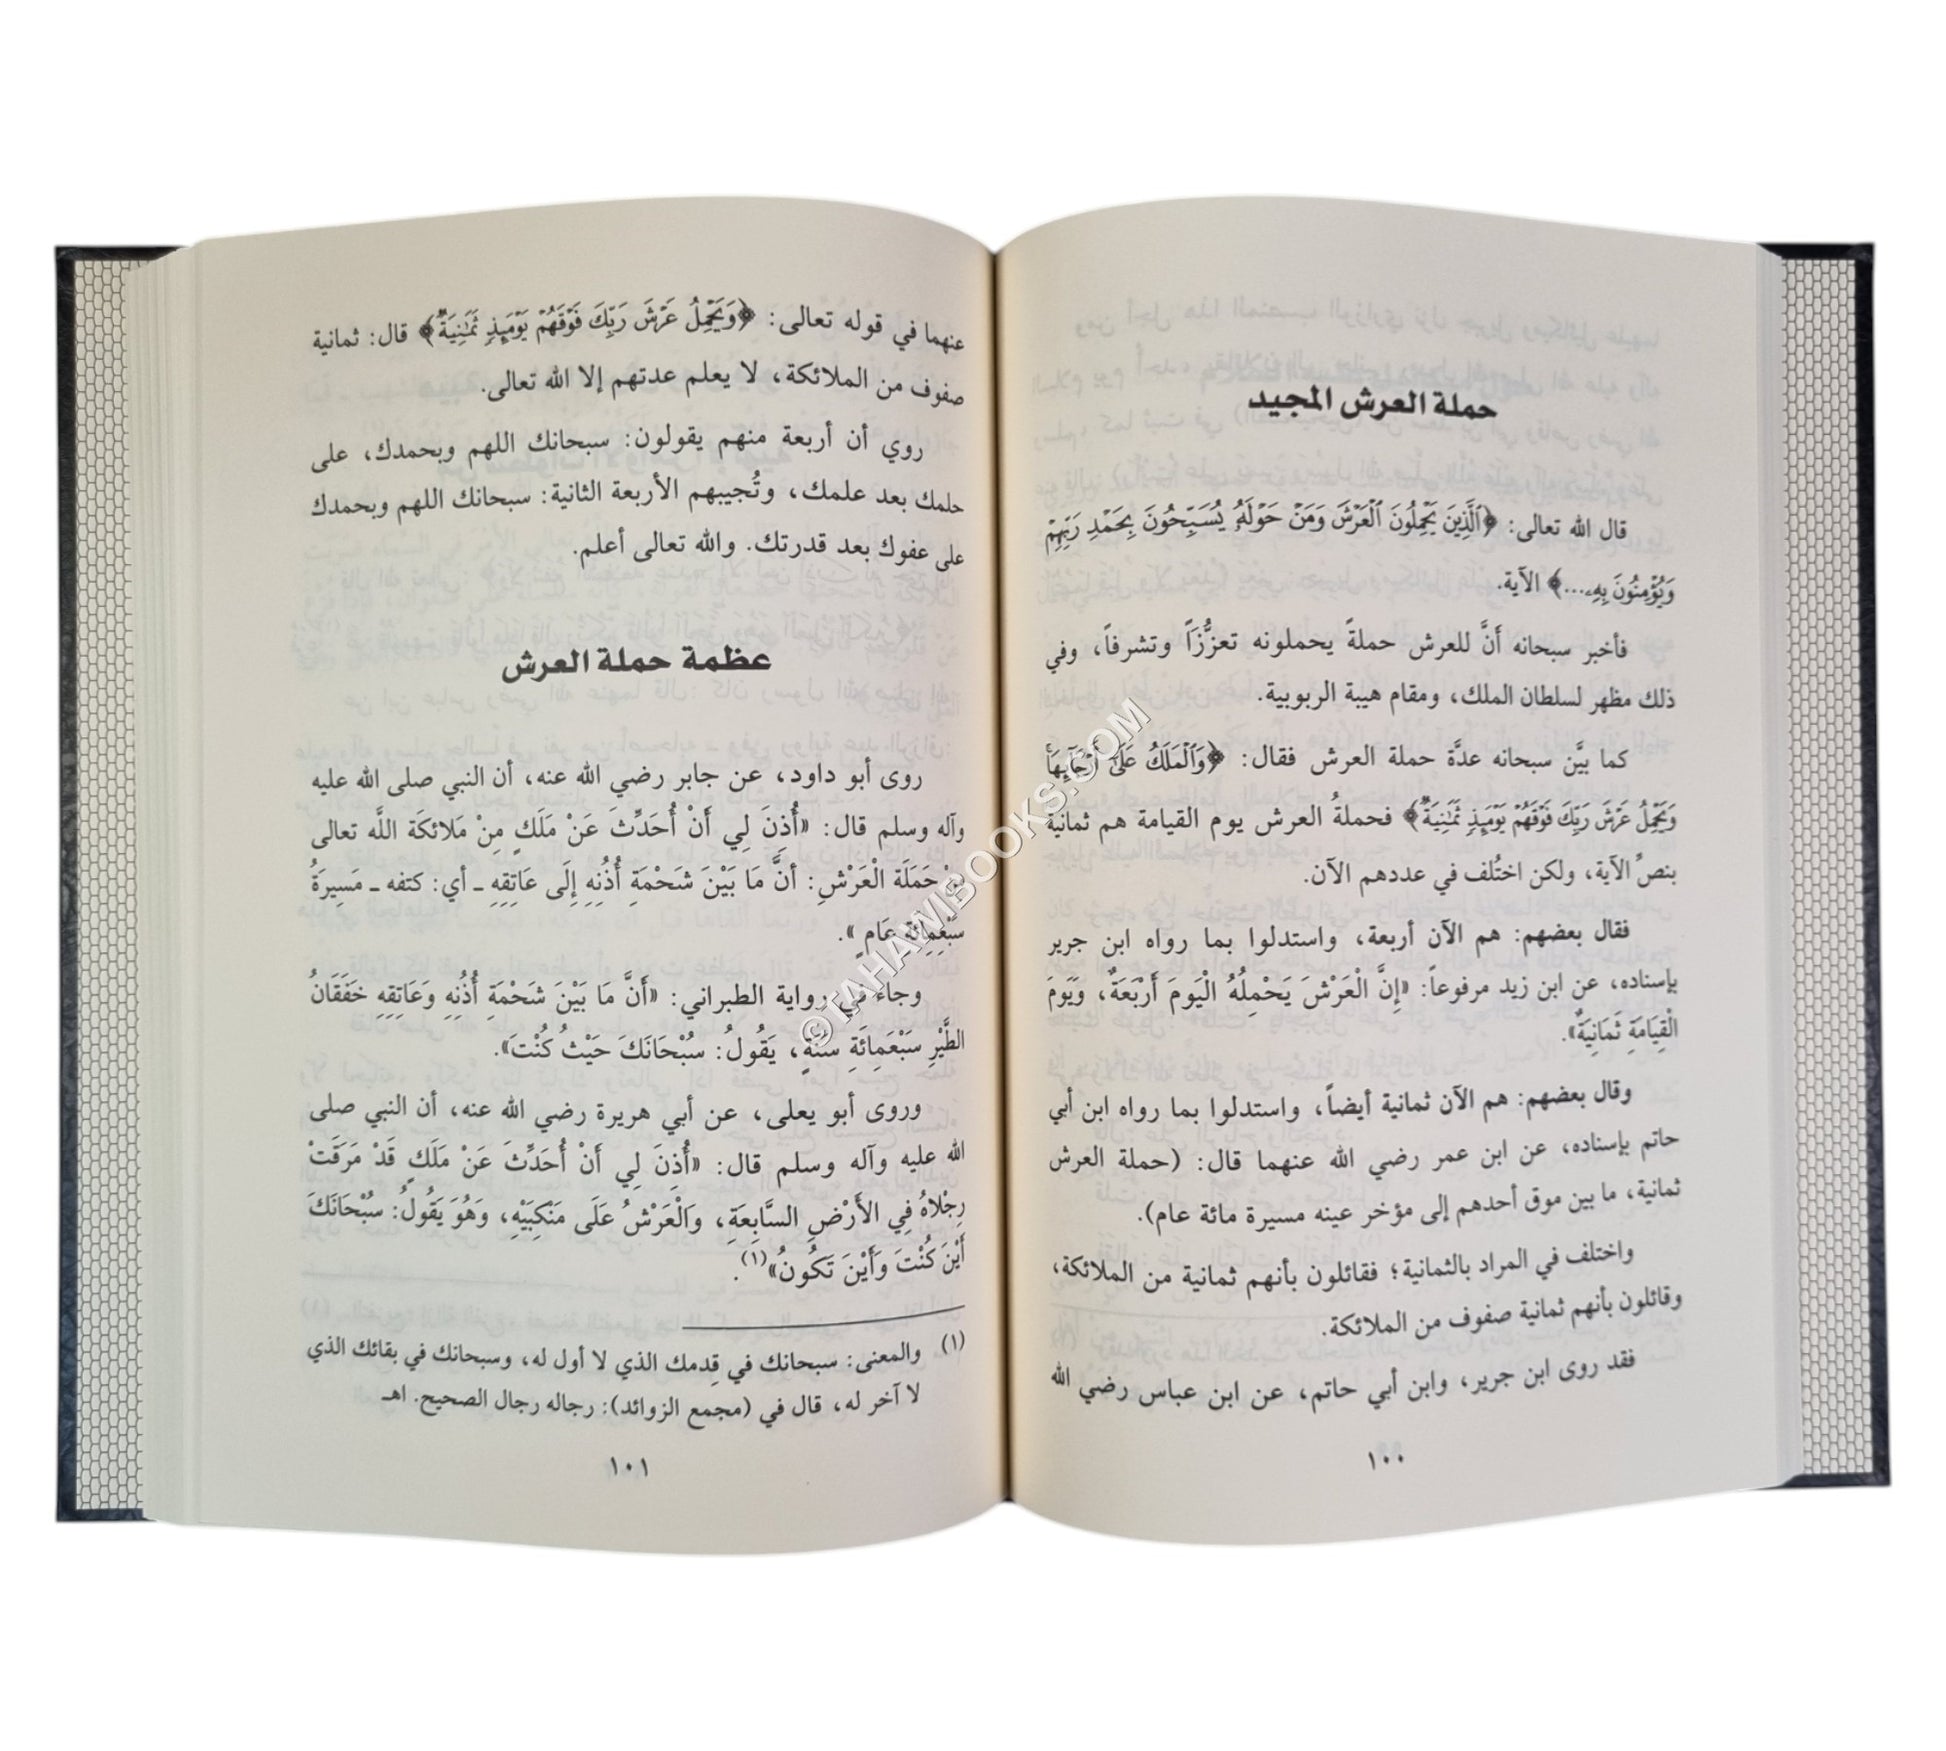 حملة العرش المجيد
قال الله تعالى: ﴿ٱلَّذِينَ يَحْمِلُونَ ٱلْعَرْشَ وَمَنْ حَوْلَهُۥ يُسَبِّحُونَ بِحَمْدِ رَبِّهِمْ
وَيُؤْمِنُونَ بِهِۦ...﴾ الآية.
فأخبر سبحانه أَنَّ للعرش حملةً يحملونه تعزُّزاً وتشرفاً، وفي
ذلك مظهر لسلطان الملك، ومقام هيبة الربوبية.
كما بيَّن سبحانه عدَّة حملة العرش فقال: ﴿وَٱلْمَلَكُ عَلَىٰٓ أَرْجَآئِهَا ۚ
وَيَحْمِلُ عَرْشَ رَبِّكَ فَوْقَهُمْ يَوْمَئِذٍ ثَمَٰنِيَةٌ﴾ فحملةُ العرش يوم القيامة هم ثمانية
بنصِّ الآية، ولكن اختُلف في عددهم الآن.
فقال بعضهم: هم الآن أربعة، واستدلوا بما رواه ابن جرير
بإسناده، عن ابن زيد مرفوعاً: «إِنَّ الْعَرْشَ يَحْمِلُهُ الْيَومَ أَرْبَعَةٌ، وَيَومَ
الْقِيَامَةِ ثَمَانِيَةٌ».
وقال بعضهم: هم الآن ثمانية أيضاً، واستدلوا بما رواه ابن أبي
حاتم بإسناده، عن ابن عمر رضي الله عنهما قال: (حملة العرش
ثمانية، ما بين موق أحدهم إلى مؤخر عينه مسيرة مائة عام).
واختلف في المراد بالثمانية؛ فقائلون بأنهم ثمانية من الملائكة،
وقائلون بأنهم ثمانية صفوف من الملائكة.
فقد روى ابن جرير، وابن أبي حاتم، عن ابن عباس رضي الله
١٠٠
عنهما في قوله تعالى: ﴿وَيَحْمِلُ عَرْشَ رَبِّكَ فَوْقَهُمْ يَوْمَئِذٍ ثَمَٰنِيَةٌ﴾ قال: ثمانية
صفوف من الملائكة، لا يعلم عدتهم إلا الله تعالى.
روي أن أربعة منهم يقولون: سبحانك اللهم وبحمدك، على
حلمك بعد علمك، وتُجيبهم الأربعة الثانية: سبحانك اللهم وبحمدك
على عفوك بعد قدرتك. والله تعالى أعلم.
عظمة حملة العرش
روى أبو داود، عن جابر رضي الله عنه، أن النبي صلى الله عليه
وآله وسلم قال: «أُذِنَ لِي أَنْ أُحَدِّثَ عَنْ مَلَكٍ مِنْ مَلائكَة اللَّه تعالى
مِنْ حَمَلَة الْعَرْشِ: أنَّ مَا بَيْنَ شَحْمَةِ أُذُنِهِ إِلَى عَاتِقِهِ ـ أي: كتفه ـ مَسِيرَةُ
سَبْعِمِائَة عَامٍ».
وجاء في رواية الطبراني: «أَنَّ مَا بَيْنَ شَحْمَةِ أُذُنِهِ وَعَاتِقِهِ خَفَقَانُ
الطَّيْرِ سَبْعَمِائَةِ سَنَةٍ، يَقُولُ: سُبْحَانَكَ حَيْثُ كُنْتَ».
وروى أبو يعلى، عن أبي هريرة رضي الله عنه، أن النبي صلى
الله عليه وآله وسلم قال: «أُذِنَ لِي أَنْ أُحَدِّثَ عَنْ مَلَكٍ قَدْ مَرَقَتْ
رِجْلاهُ فِي الأَرْضِ السَّابِعَةِ، وَالْعَرْشُ عَلَى مَنْكِبَيْهِ، وَهُوَ يَقُولُ: سُبْحَانَكَ
أَيْنَ كُنْتَ وَأَيْنَ تَكُونُ»(١).
(١) والمعنى: سبحانك في قِدمك الذي لا أول له، وسبحانك في بقائك الذي
لا آخر له، قال في (مجمع الزوائد): رجاله رجال الصحيح. اهـ
١٠١
©TAHAWIBOOKS.COM